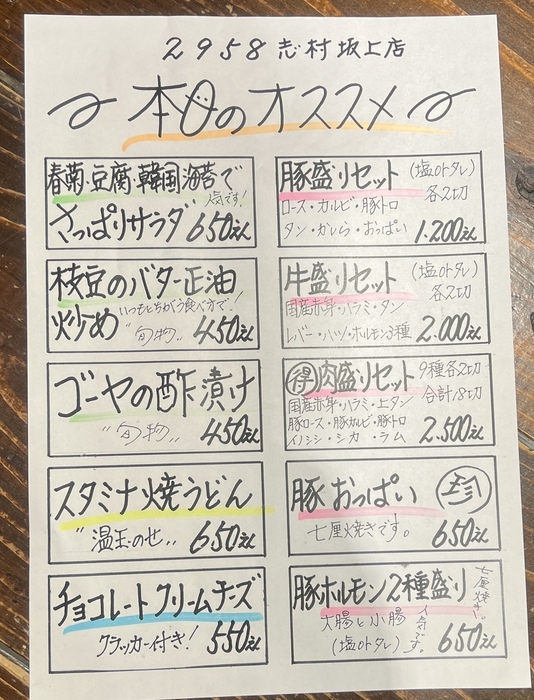 2958 志村坂上店
本日のオススメ
春菊・豆腐・韓国海苔で
人気です!
さっぱりサラダ 650えん
枝豆のバター正油
炒め いつもとちがう食べ方で!
"旬物" 450えん
ゴーヤの酢漬け
"旬物" 450えん
スタミナ焼うどん
"温玉のせ" 650えん
チョコレートクリームチーズ
クラッカー付き! 550えん
豚盛りセット (塩orタレ)
各2切
ロース・カルビ・豚トロ
タン・ガしら・おっぱい 1.200えん
牛盛りセット (塩orタレ)
各2切
国産赤身・ハラミ・タン
レバー・ハツ・ホルモン3種 2.000えん
得 肉盛りセット 9種各2切
合計18切
国産赤身・ハラミ・上タン
豚ロース・豚カルビ・豚トロ
イノシシ・シカ・ラム 2.500えん
豚おっぱい 珍
七厘焼きです。 650えん
豚ホルモン2種盛り 七厘焼き。
大腸と小腸 人気です。
(塩orタレ) 650えん